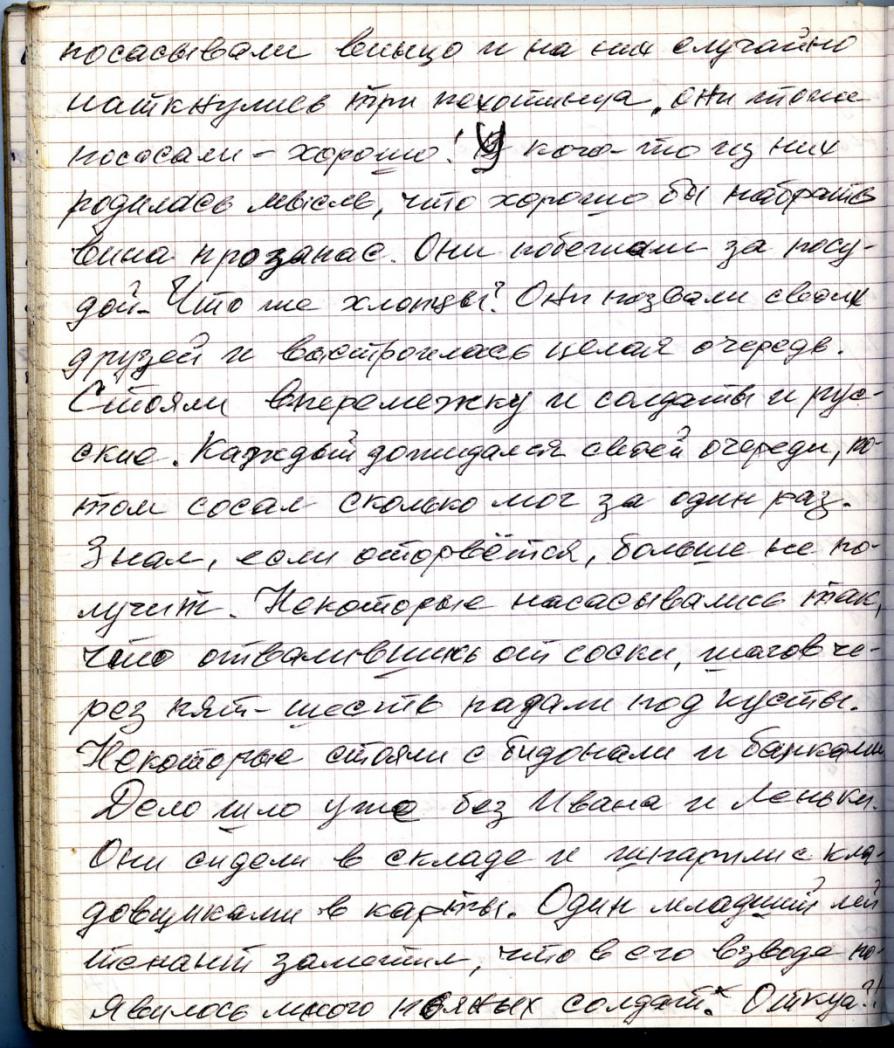 посасывали винцо и на них случайно
наткнулись три пехотинца, они тоже
пососали – хорошо! У кого-то из них
родилась мысль, что хорошо бы набрать
вина прозапас. Они побежали за посу-
дой. Что же хлопцы? Они позвали своих
друзей и выстроилась целая очередь.
Стояли вперемежку и солдаты и рус-
ские. Каждый дожидался своей очереди, по-
том сосал сколько мог за один раз.
Знал, если оторвётся, больше не по-
лучит. Некоторые насасывались так,
что отвалившись от соски, шагов че-
рез пят-шесть падали под кусты.
Некоторые стояли с бидонами и банками
Дело шло уже без Ивана и Леньки.
Они сидели в складе и шпарили с кла-
довщиками в карты. Один младший лей
тенант заметил, что в его взводе по-
явилось много пьяных солдат. Откуда?!